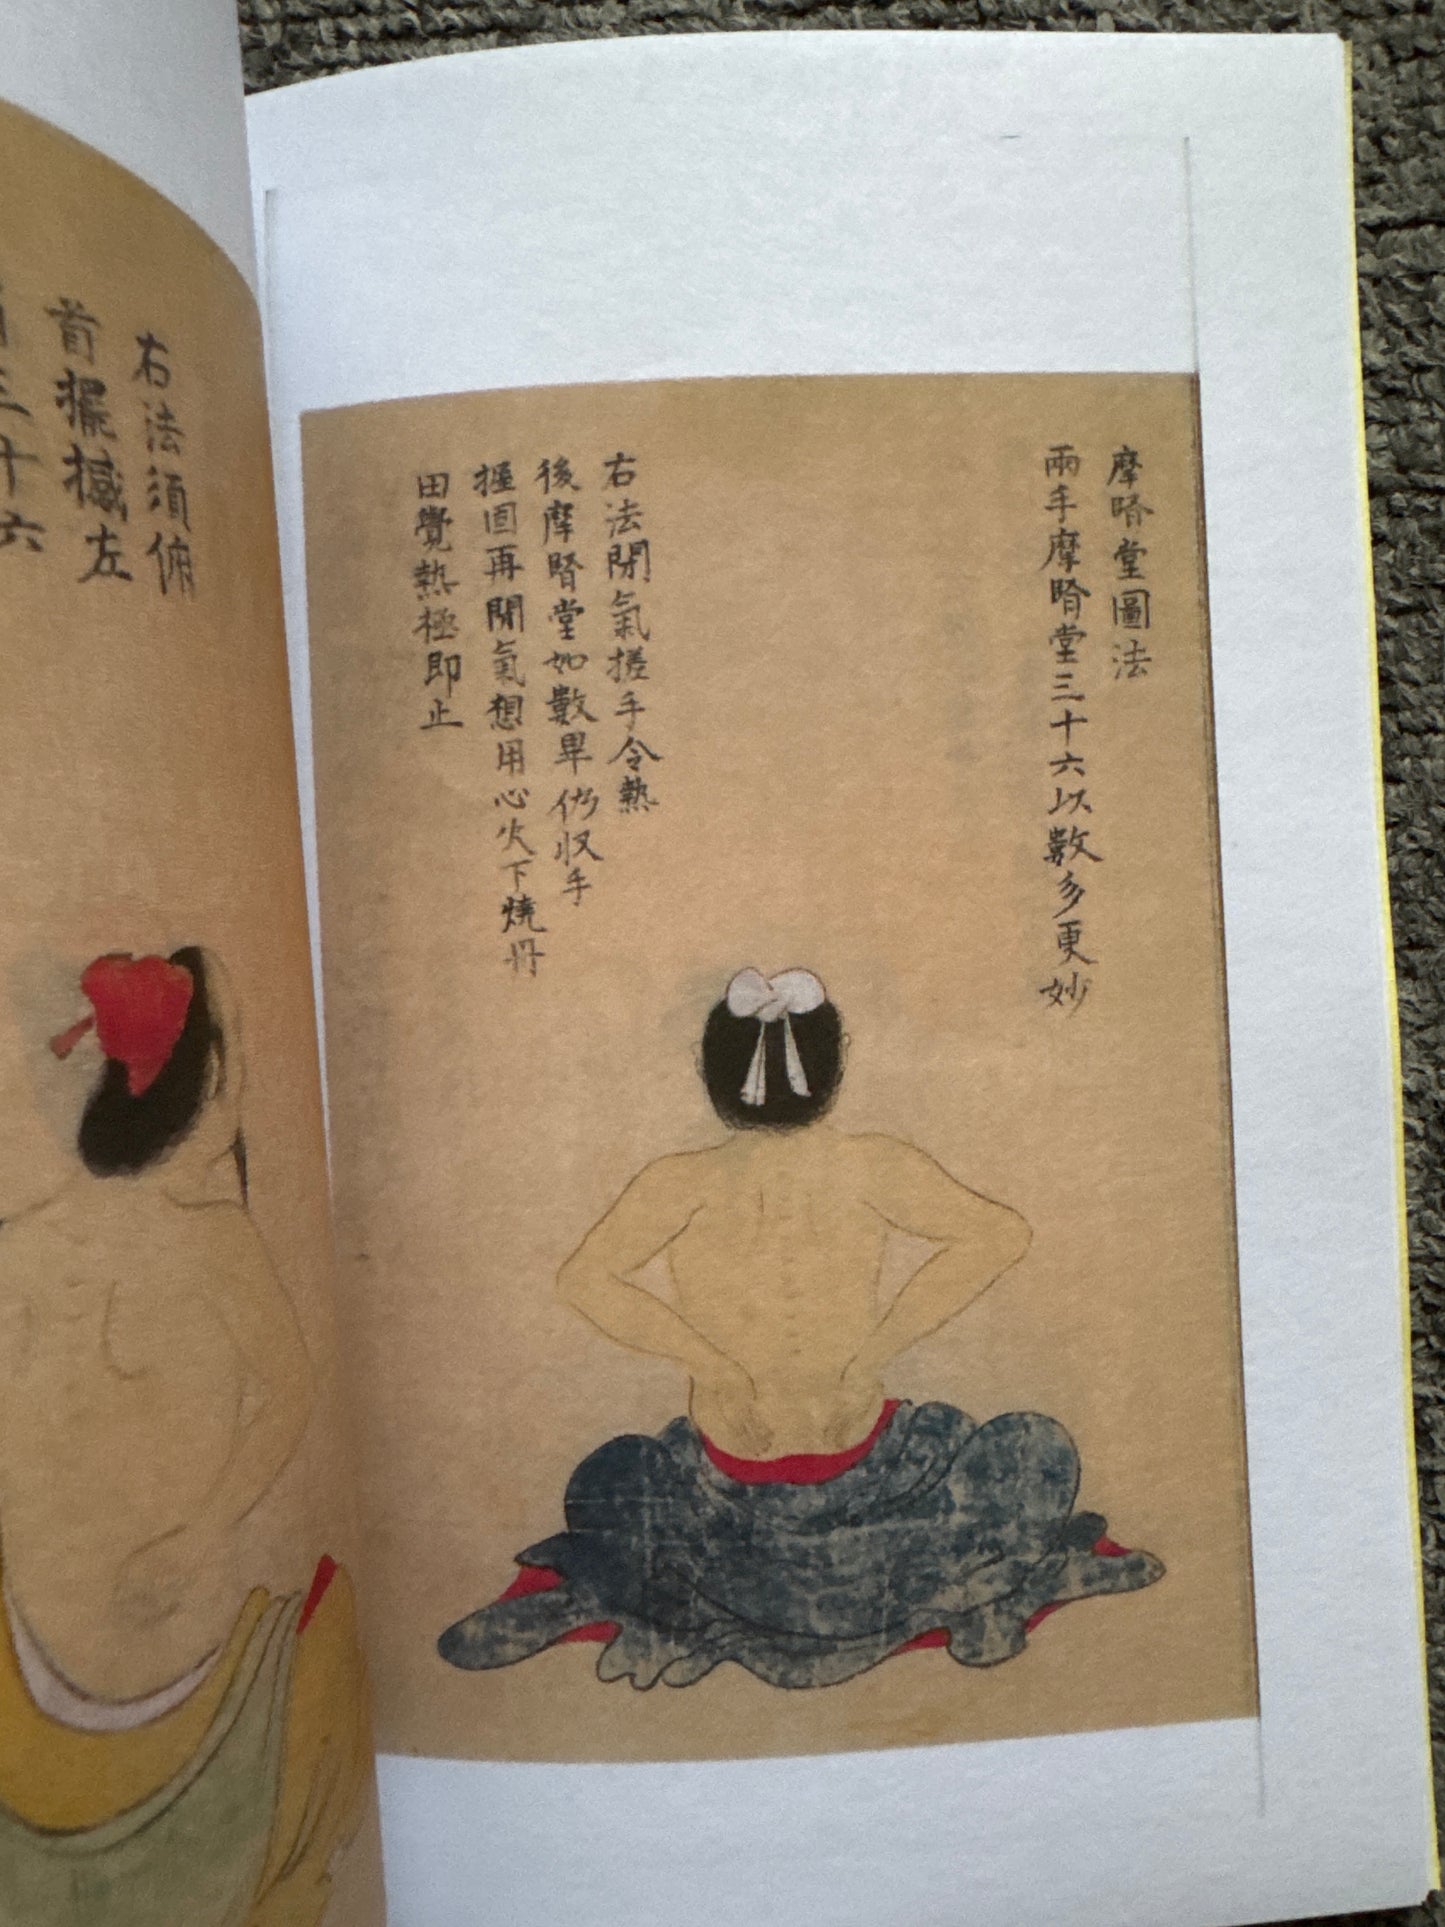 摩腎堂圖法
兩手摩腎堂三十六以數多更妙
右法閉氣搓手令熱
後摩腎堂如數畢仍收手
握固再閉氣想用心火下燒丹
田覺熱極即止
右法須俯
首擺撼左
三十六